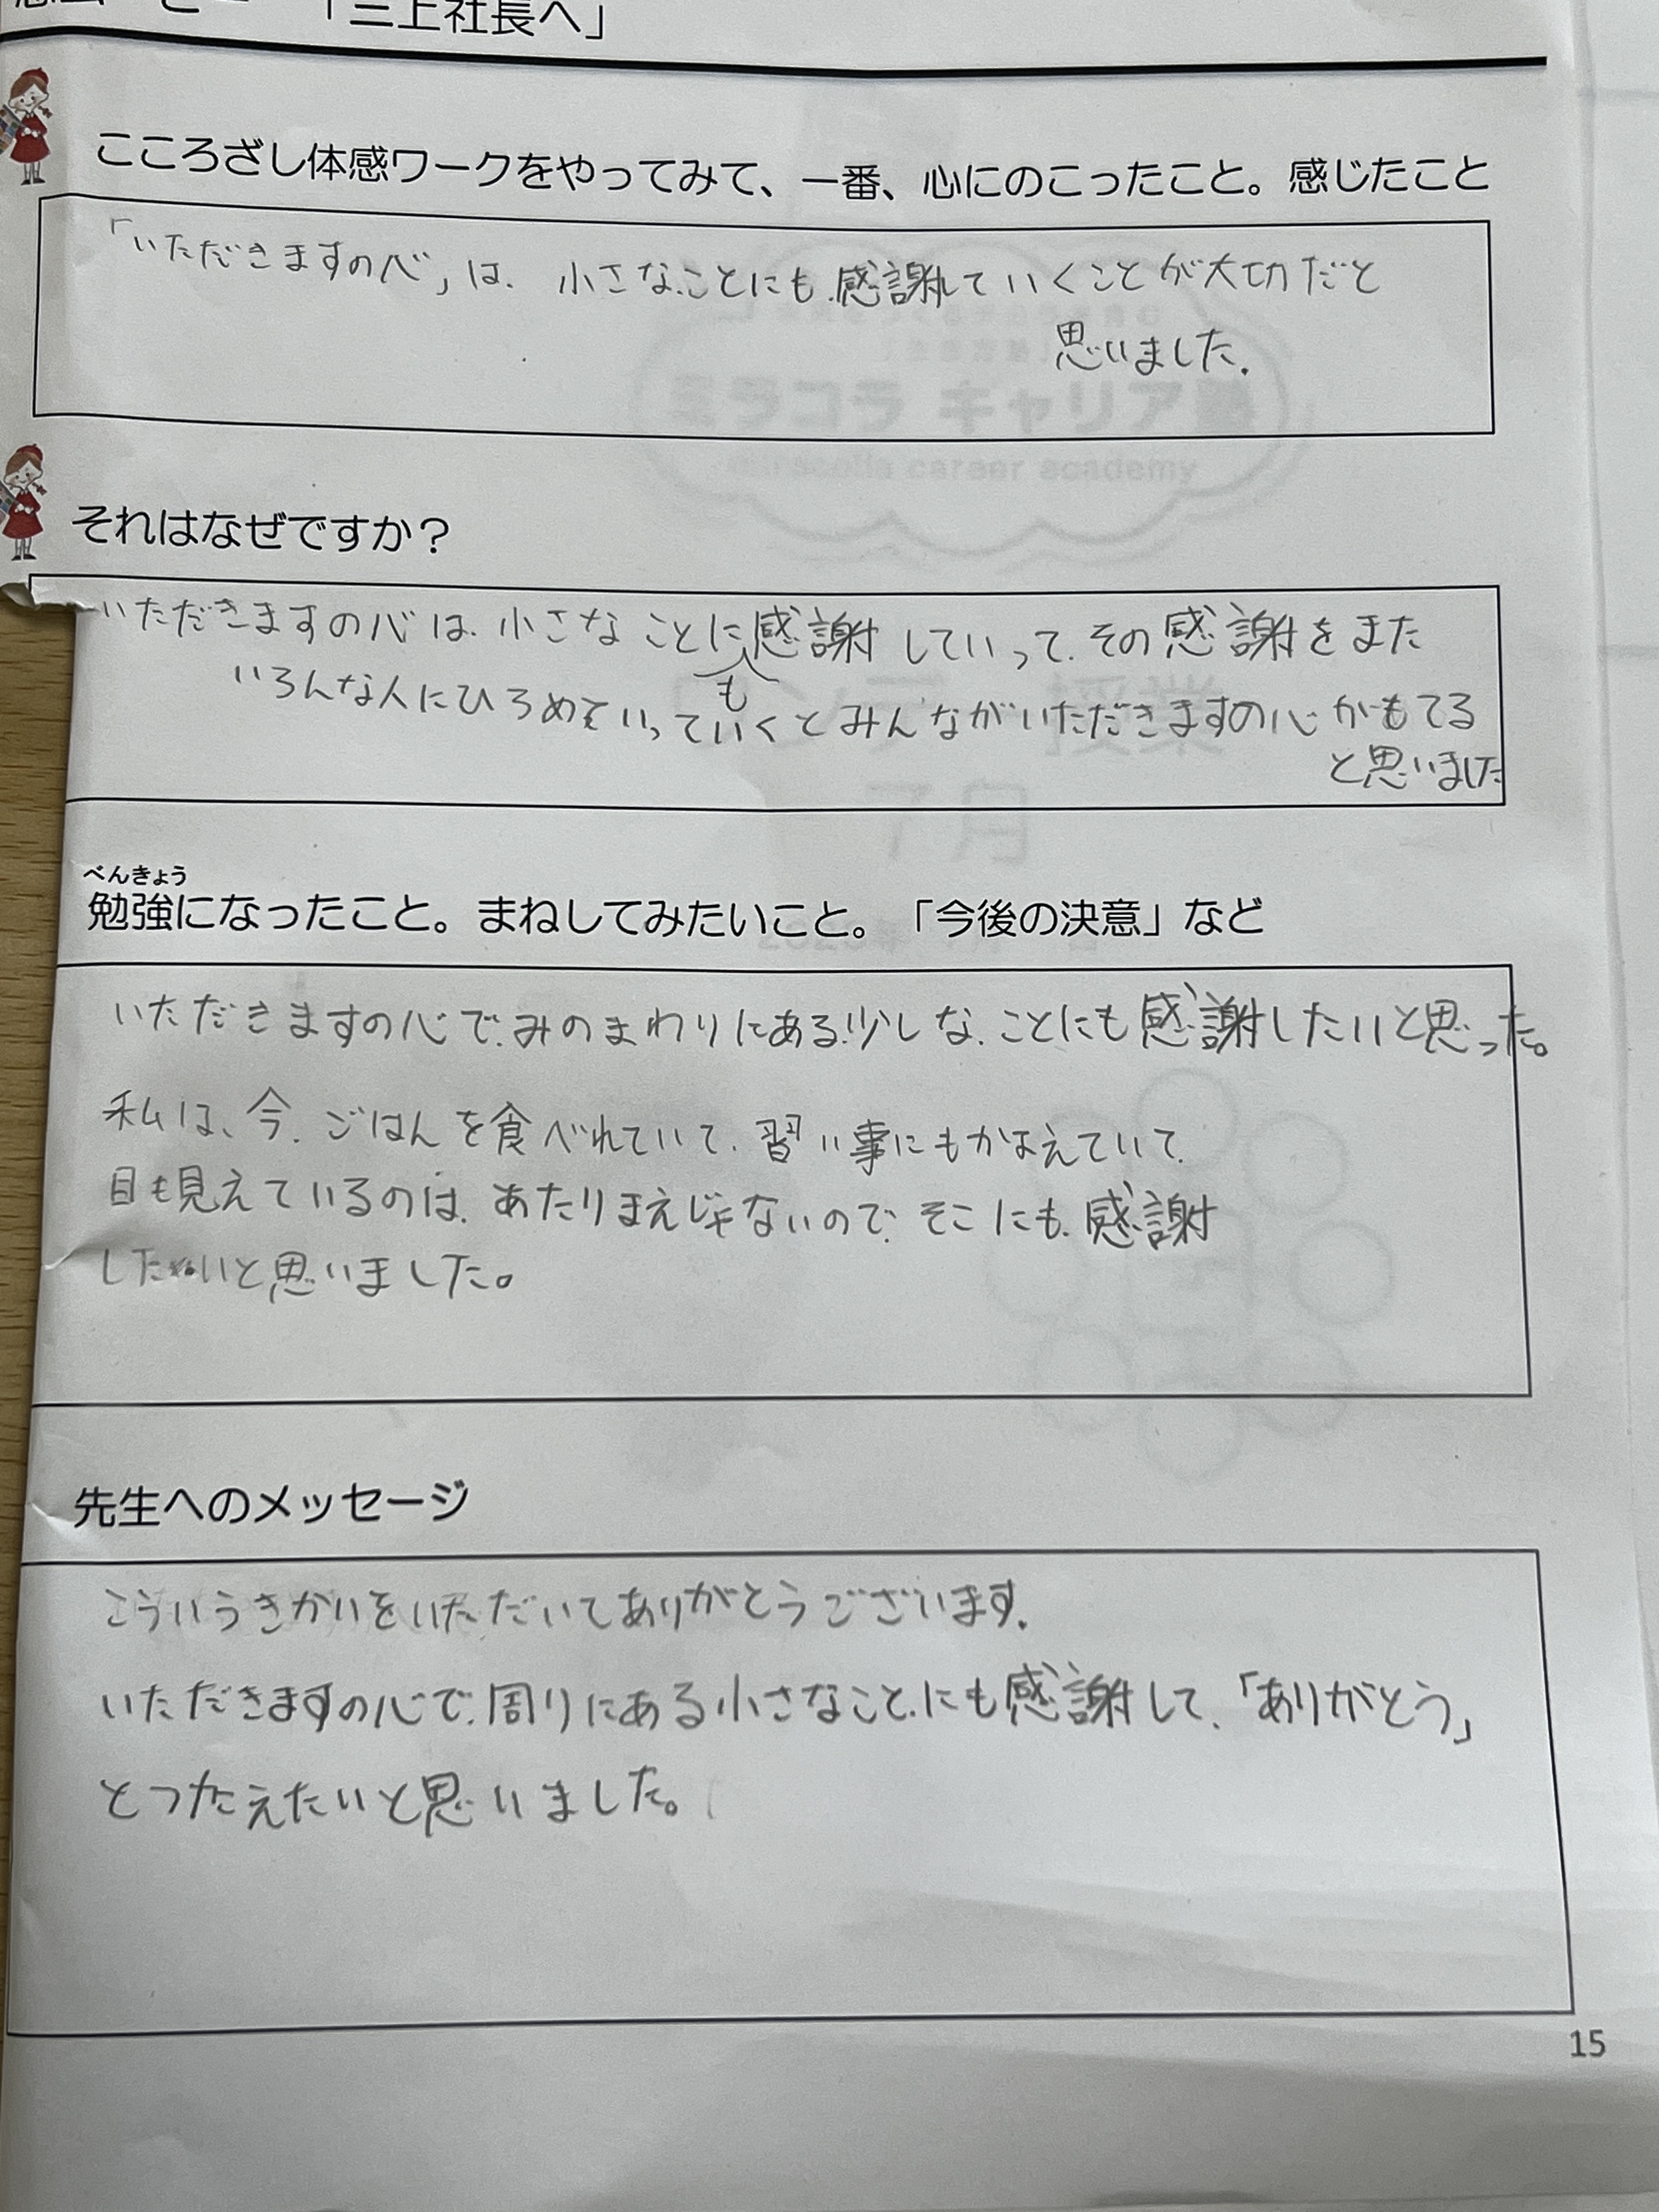 「三上社長へ」
こころざし体感ワークをやってみて、一番、心にのこったこと。感じたこと
「いただきますの心」は、小さなことにも感謝していくことが大切だと
思いました。
それはなぜですか？
いただきますの心は、小さなことに感謝していって、その感謝をまた
も
いろんな人にひろめていっていくとみんながいただきますの心がもてる
と思いました
べんきょう
勉強になったこと。まねしてみたいこと。「今後の決意」など
いただきますの心で、みのまわりにある少しな、ことにも感謝したいと思った。
私は、今、ごはんを食べれていて、習い事にもかよえていて、
目も見えているのは、あたりまえじゃないので、そこにも、感謝
したいと思いました。
先生へのメッセージ
こういうきかいをいただいてありがとうございます。
いただきますの心で、周りにある小さなことにも感謝して、「ありがとう」
とつたえたいと思いました。
15